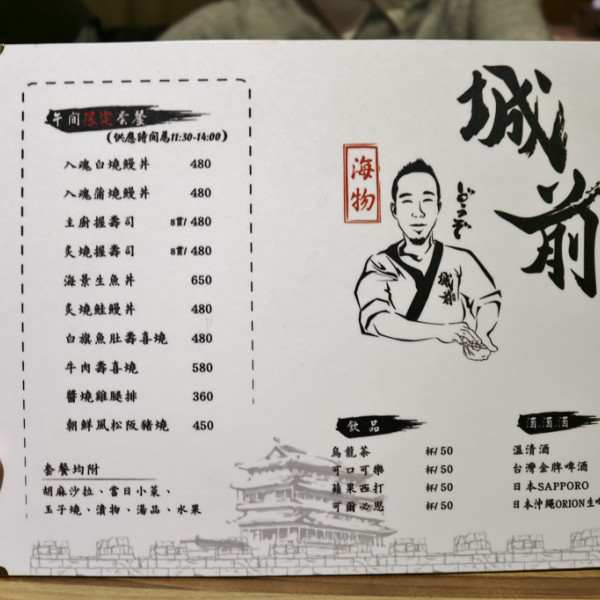 午間限定套餐
(供應時間為11:30-14:00)
入魂白燒鰻丼 480
入魂蒲燒鰻丼 480
主廚握壽司 8貫/ 480
炙燒握壽司 8貫/ 480
海景生魚丼 650
炙燒鮭鰻丼 480
白旗魚肚壽喜燒 480
牛肉壽喜燒 580
醬燒雞腿排 360
朝鮮風松阪豬燒 450
套餐均附
胡麻沙拉、當日小菜、
玉子燒、漬物、湯品、水果
城前
海物
城前
飲品
烏龍茶 杯/ 50
可口可樂 杯/ 50
蘋果西打 杯/ 50
可爾必思 杯/ 50
酒.酒.酒
溫清酒
台灣金牌啤酒
日本SAPPORO
日本沖繩ORION生啤